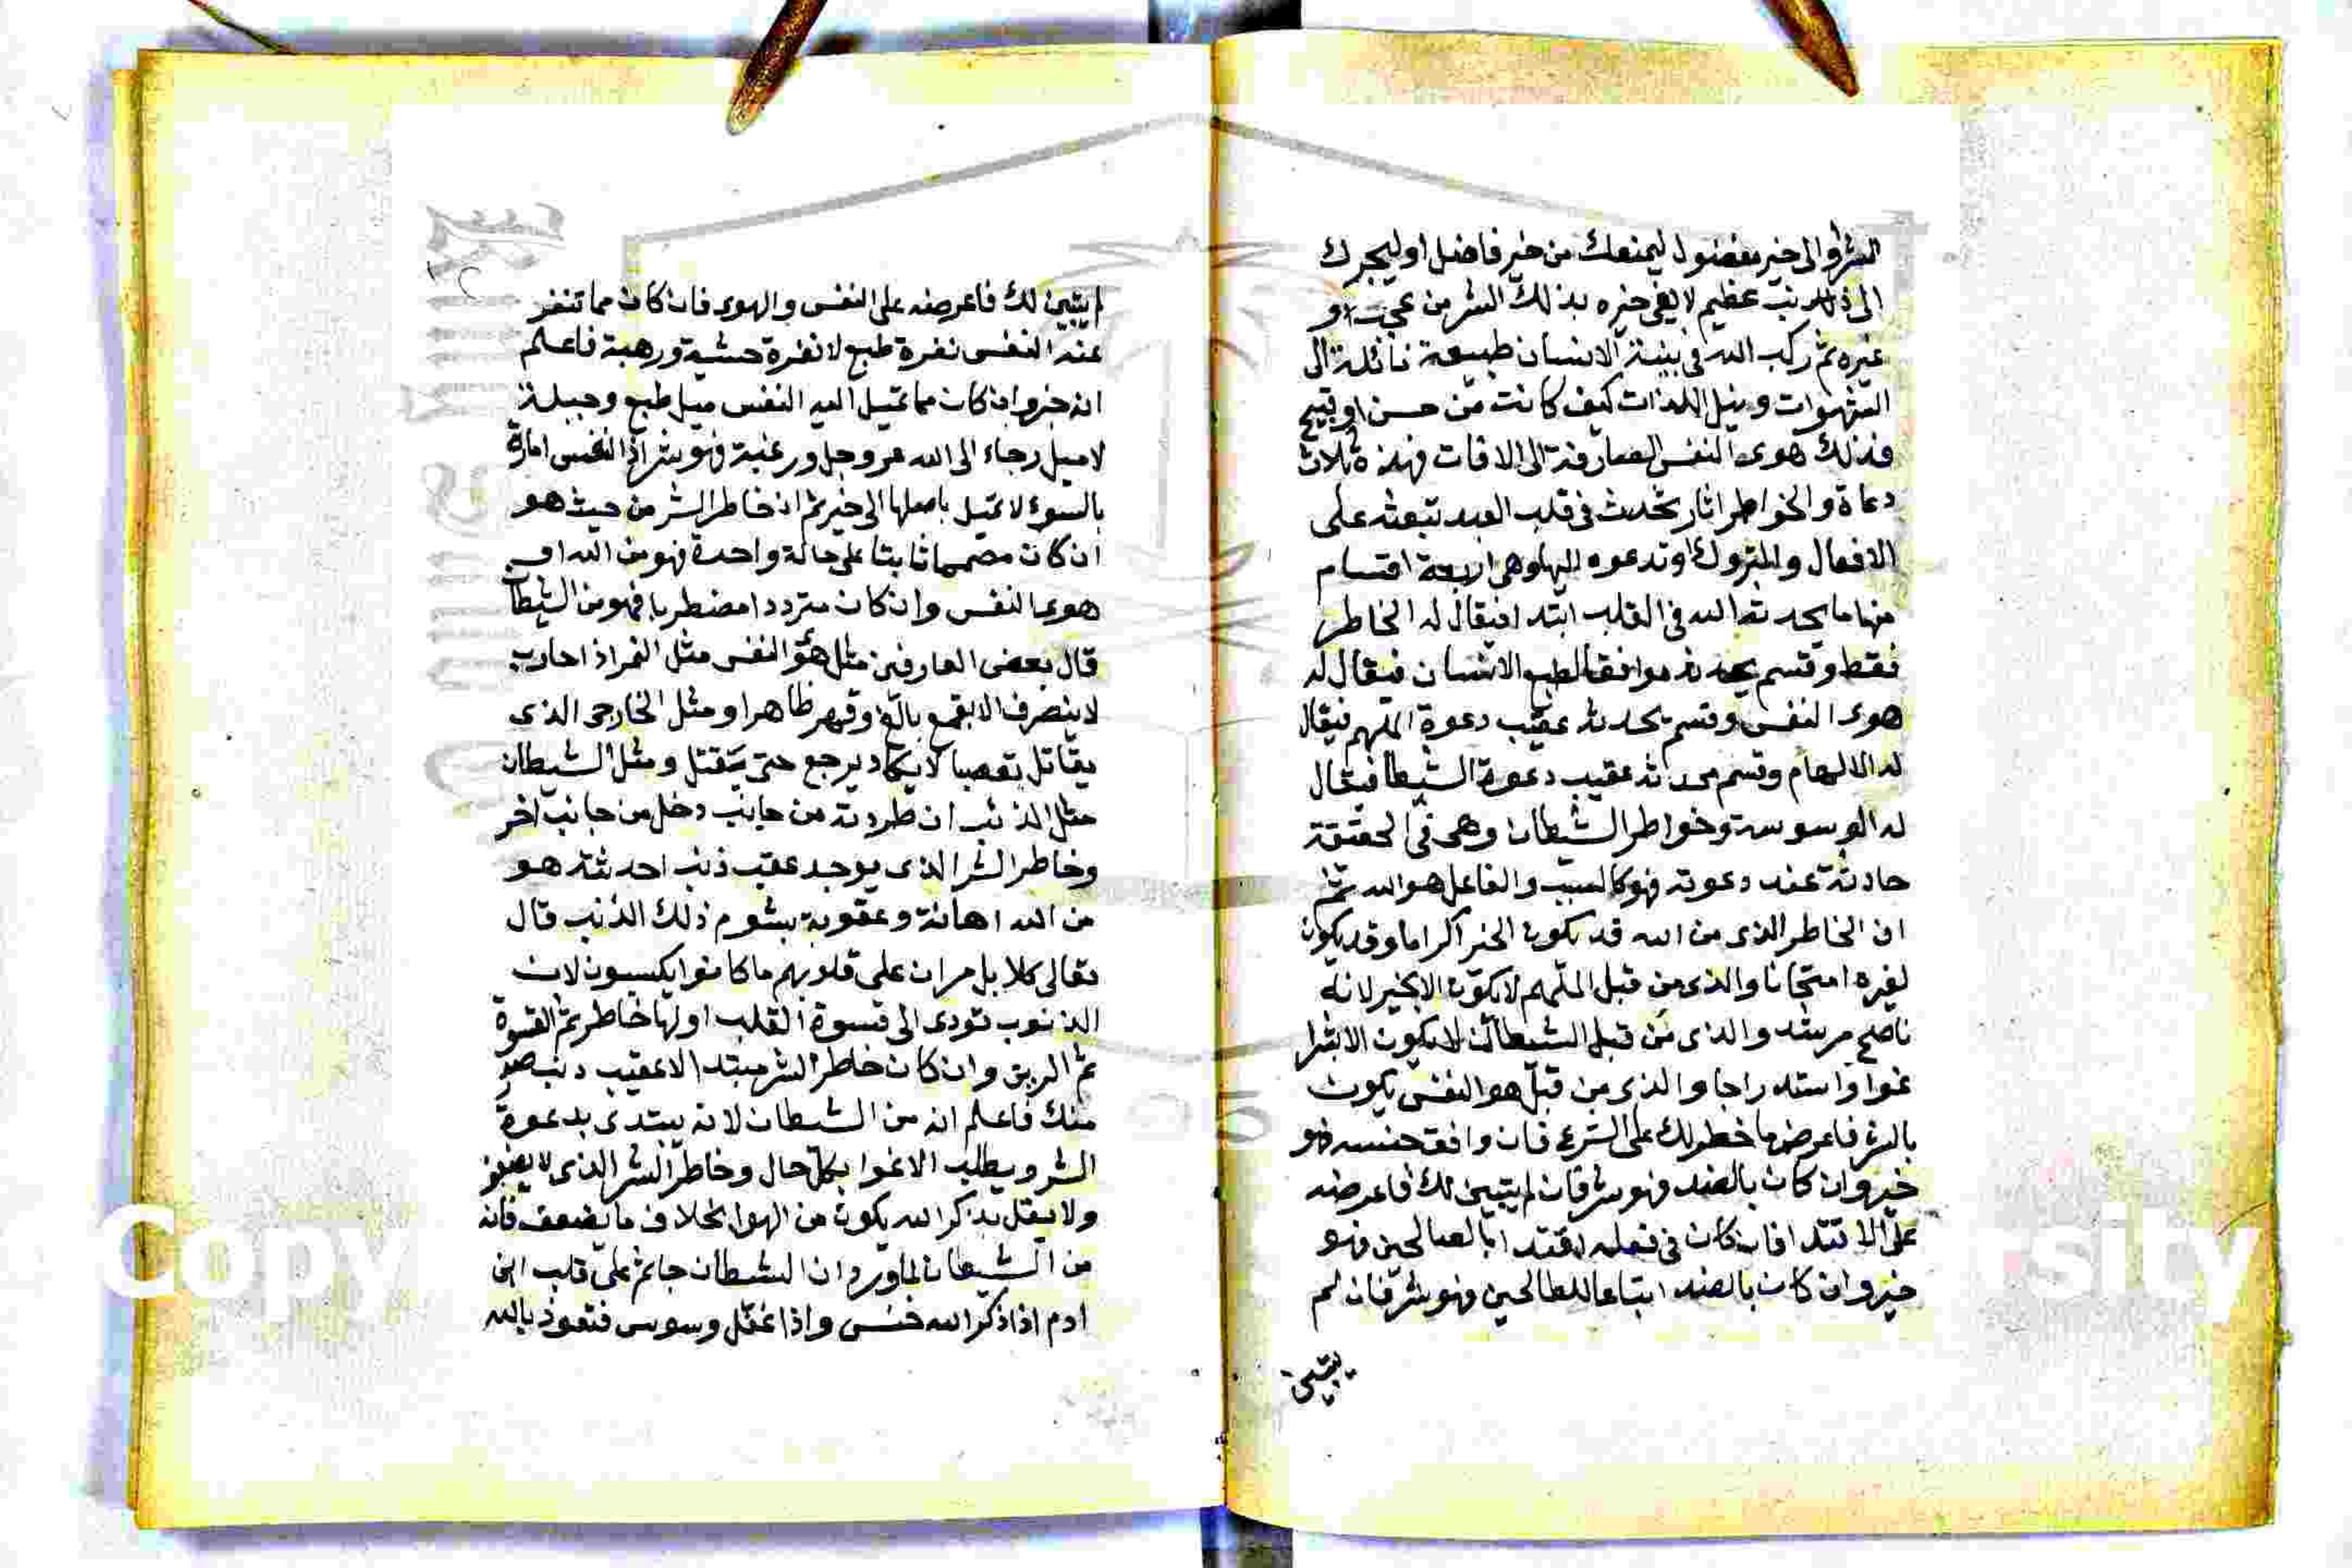 الشر والى خير مفضول ليمنعك من خير فاضل او ليجرك
الى ذنب عظيم لا يفي خيره بذلك الشر من عجب او
غيره ثم ركب الله في بنية الانسان طبيعة مائلة الى
الشهوات ونيل اللذات كيف كانت من حسن او قبيح
فذلك هوى النفس الصارفة الى الافات فهذه ثلاث
دعاة والخواطر اثار تحدث في قلب العبد تبعثه على
الافعال والتروك وتدعوه اليها وهي اربعة اقسام
منها ما يحدثه الله في القلب ابتدا فيقال له الخاطر
فقط وقسم يحدثه موافقا لطبع الانسان فيقال له
هوى النفس وقسم يحدثه عقيب دعوة الملهم فيقال
له الالهام وقسم يحدثه عقيب دعوة الشيطان فيقال
له الوسوسة وخواطر الشيطان وهي في الحقيقة
حادثة عند دعوته فهو كالسبب والفاعل هو الله ثم
ان الخاطر الذي من الله قد يكون الخير اكراما وقد يكون
لغيره امتحانا والذي من قبل الملهم لا يكون الا بخير لانه
ناصح مرشد والذي من قبل الشيطان لا يكون الا بشر ا
غوا واستدراجا والذي من قبل هو النفس يكون
بالشر فاعرض ما خطر لك على الشرع فان وافق جنسه فهو
خير وان كان بالضد فهو شر فان لم يتبين لك فاعرضه
على الاقتدا فان كان في فعله اقتدا بالصالحين فهو
خير وان كان بالضد اتباعا للطالحين فهو شر فان لم
يتبين
لم يتبين لك فاعرضه على النفس والهوى فان كان مما تنفر
عنه النفس نفرة طبع لا نفرة خشية ورهبة فاعلم
انه خير وان كان مما تميل اليه النفس ميل طبع وجبلة
لا ميل رجاء الى الله عز وجل ورغبة فهو شر اذ النفس امارة
بالسوء لا تميل باصلها الى خير ثم ان خاطر الشر من حيث هو
ان كان مصمما ثابتا على حالة واحدة فهو من الله او
هوى النفس وان كان مترددا مضطربا فهو من الشيطان
قال بعض العارفين مثل هو النفس مثل النمر اذا حارب
لا ينصرف الا بقمع بالغ وقهر ظاهر او مثل الخارجى الذي
يقاتل تعصبا لا يكاد يرجع حتى يقتل ومثل الشيطان
مثل الذئب ان طردته من جانب دخل من جانب اخر
وخاطر الشر الذي يوجد عقب ذنب احدثته هو
من الله اهانة وعقوبة بشوم ذلك الذنب قال
تعالى كلا بل ران على قلوبهم ما كانوا يكسبون لان
الذنوب تودى الى قسوة القلب اولها خاطر ثم القسوة
ثم الرين وان كان خاطر الشر مبتدا لا عقيب ذنب هو
منك فاعلم انه من الشيطان لانه يبتدى بدعوة
الشر ويطلب الاغوا بكل حال وخاطر الشر الذي لا يضعف
ولا يقل بذكر الله يكون من الهوا بخلاف ما يضعف فانه
من الشيطان لما ورد ان الشيطان جاثم على قلب ابن
ادم اذا ذكر الله خنس واذا غفل وسوس فتعوذ بالله